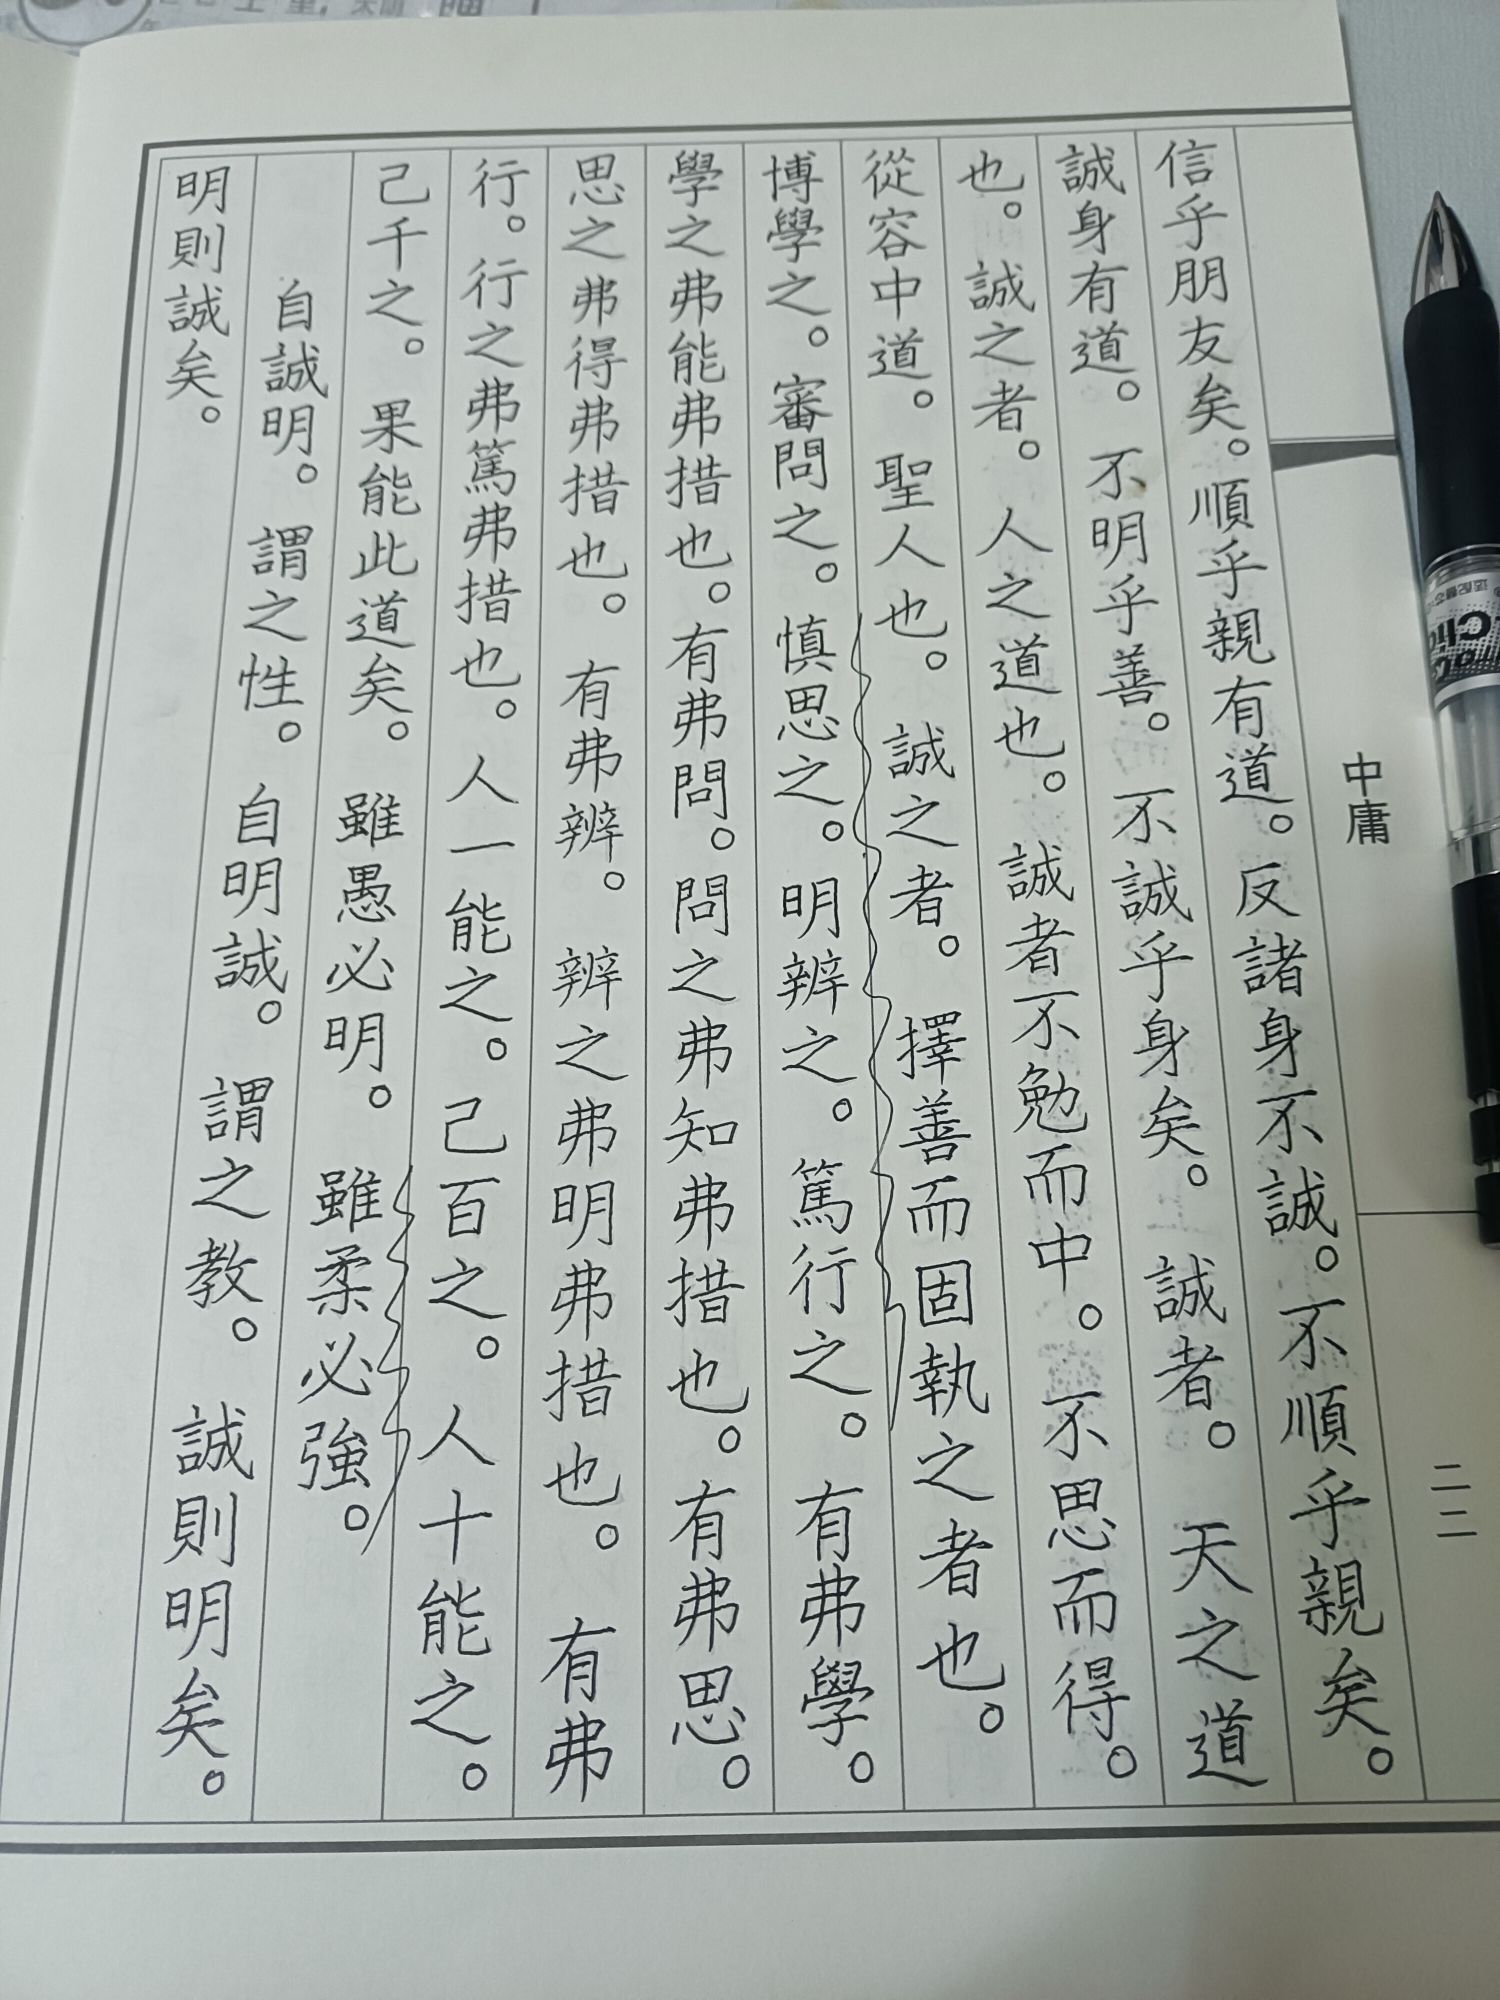 信乎朋友矣。順乎親有道。反諸身不誠。不順乎親矣。
誠身有道。不明乎善。不誠乎身矣。誠者。天之道
也。誠之者。人之道也。誠者不勉而中。不思而得。
從容中道。聖人也。誠之者。擇善而固執之者也。
博學之。審問之。慎思之。明辨之。篤行之。有弗學。
學之弗能弗措也。有弗問。問之弗知弗措也。有弗思。
思之弗得弗措也。有弗辨。辨之弗明弗措也。有弗
行。行之弗篤弗措也。人一能之。己百之。人十能之。
己千之。果能此道矣。雖愚必明。雖柔必強。
自誠明。謂之性。自明誠。謂之教。誠則明矣。
明則誠矣。
中庸
二二